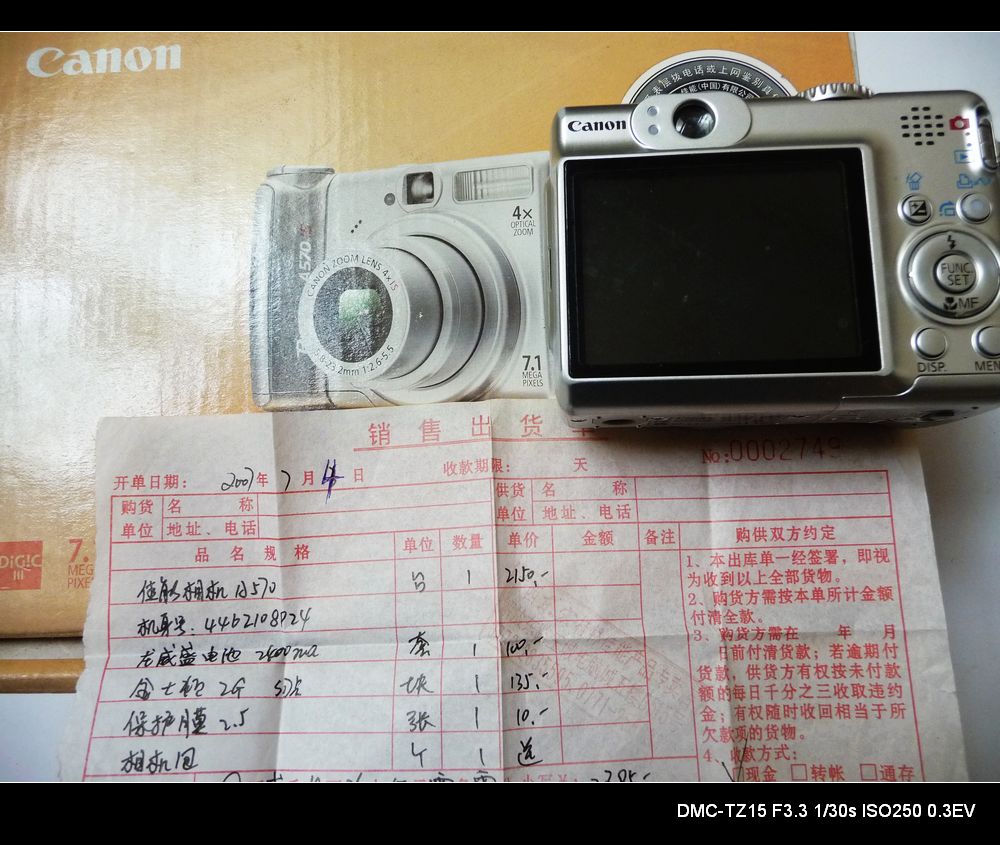 Canon
佳能(中国)有限公司
Canon
4x
OPTICAL
ZOOM
A570 IS
CANON ZOOM LENS 4x IS
5.8-23.2mm 1:2.6-5.5
7.1
MEGA
PIXELS
FUNC.
SET
MF
DISP.
MEN
DIGIC
III
7.
MEG
PIXE
销售出货单
No:0002749
开单日期: 2007年7月 日 收款期限: 天
购货单位 名称 供货单位 名称
地址、电话 地址、电话
品名规格 单位 数量 单价 金额 备注 购供双方约定
佳能相机 A570 台 1 2150.-
机身号: 4462108924
电池 2400ma 套 1 100.-
金士顿 2G SD卡 块 1 135.-
保护膜 2.5 张 1 10.-
相机包 个 1 送
1、本出库单一经签署,即视
为收到以上全部货物。
2、购货方需按本单所计金额
付清全款。
3、购货方需在 年 月
日前付清货款;若逾期付
货款,供货方有权按未付款
额的每日千分之三收取违约
金;有权随时收回相当于所
欠款项的货物。
4、收款方式:
现金 □转帐 □通存
DMC-TZ15 F3.3 1/30s ISO250 0.3EV